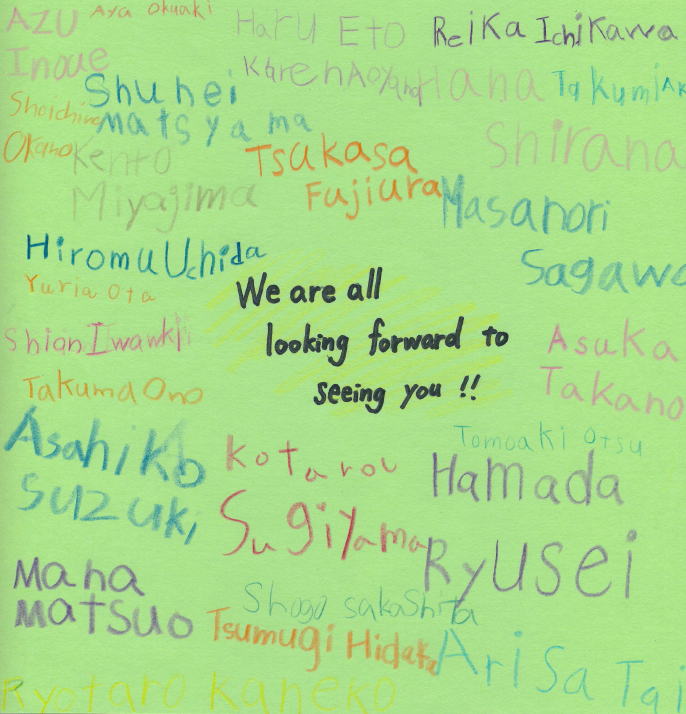 AZU
Inoue
Aya Okuaki
Haru Eto
Reika Ichikawa
Karen Aoyang
Hana
Shirana
Takumi AK
Shuhei
Matsyama
Shoichiro
Okano
Kento
Miyajima
Tsukasa
Fujiura
Masanori
Sagawa
Hiromu Uchida
Yuria Ota
We are all
looking forward to
seeing you !!
Shian Iwawki
Asuka
Takano
Takuma Ono
Asahiko
Suzuki
Kotarou
Sugiyama
Tomoaki Otsu
Hamada
Ryusei
Mana
Matsuo
Shogo Sakashita
Tsumugi Hidaka
Arisa Tai
Ryotaro Kaneko